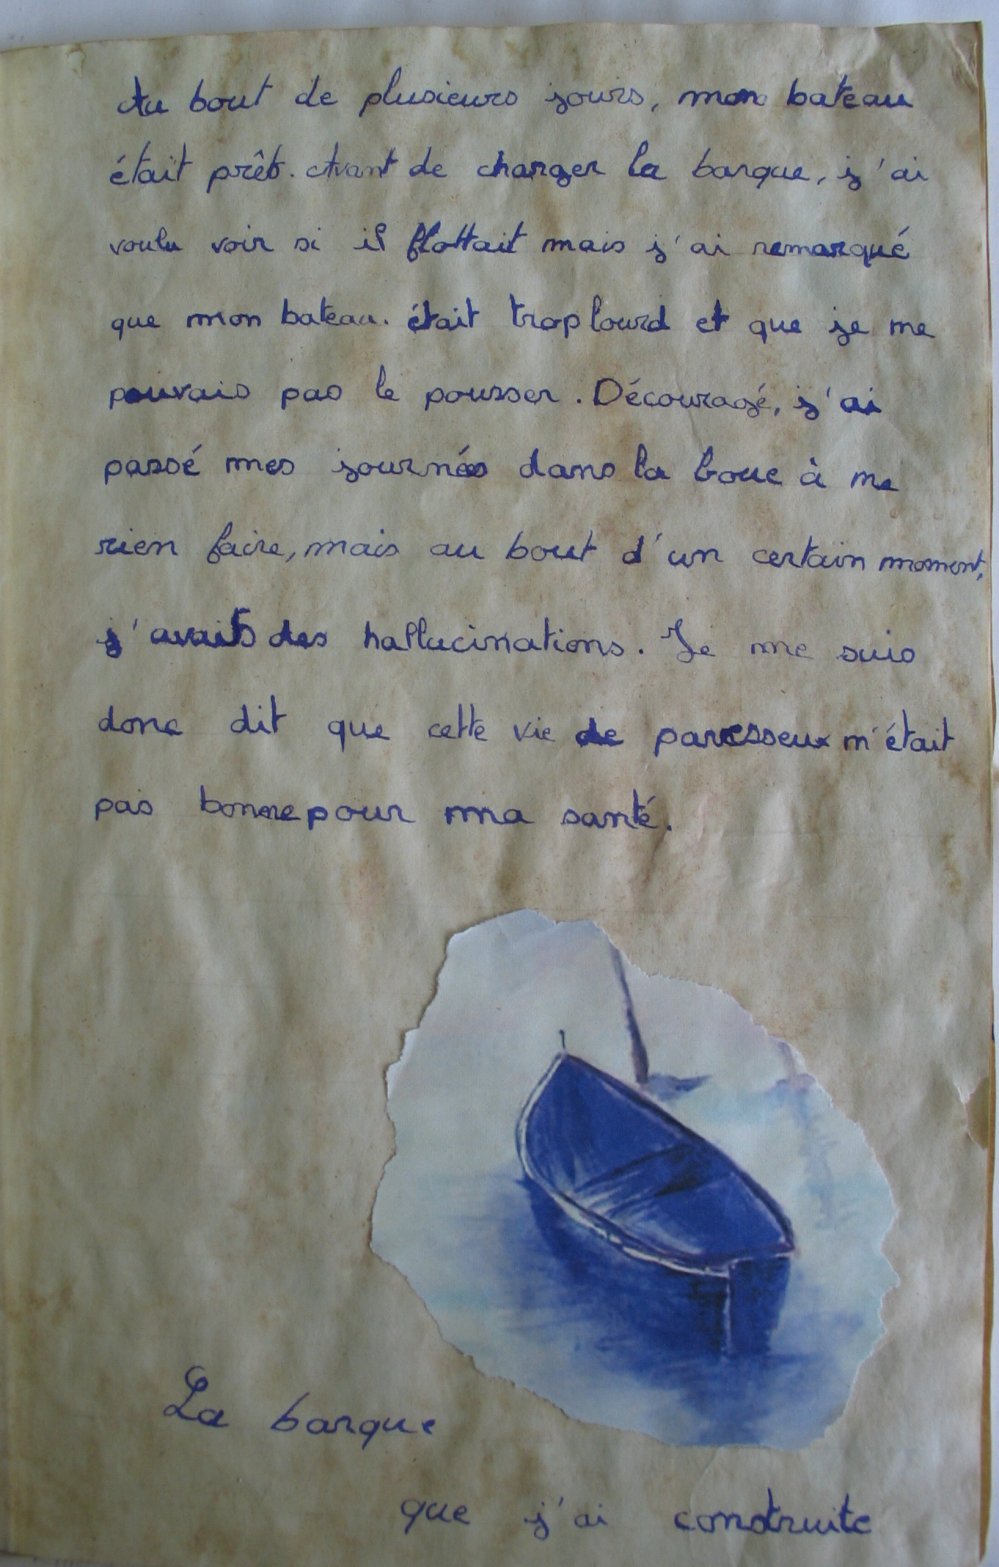 Au bout de plusieurs jours, mon bateau
était prêt. Avant de charger la barque, j'ai
voulu voir si il flottait mais j'ai remarqué
que mon bateau. était trop lourd et que je ne
pouvais pas le pousser. Découragé, j'ai
passé mes journées dans la boue à ne
rien faire, mais au bout d'un certain moment,
j'avais des hallucinations. Je me suis
donc dit que cette vie de paresseux m'était
pas bonne pour ma santé.
La barque
que j'ai construite